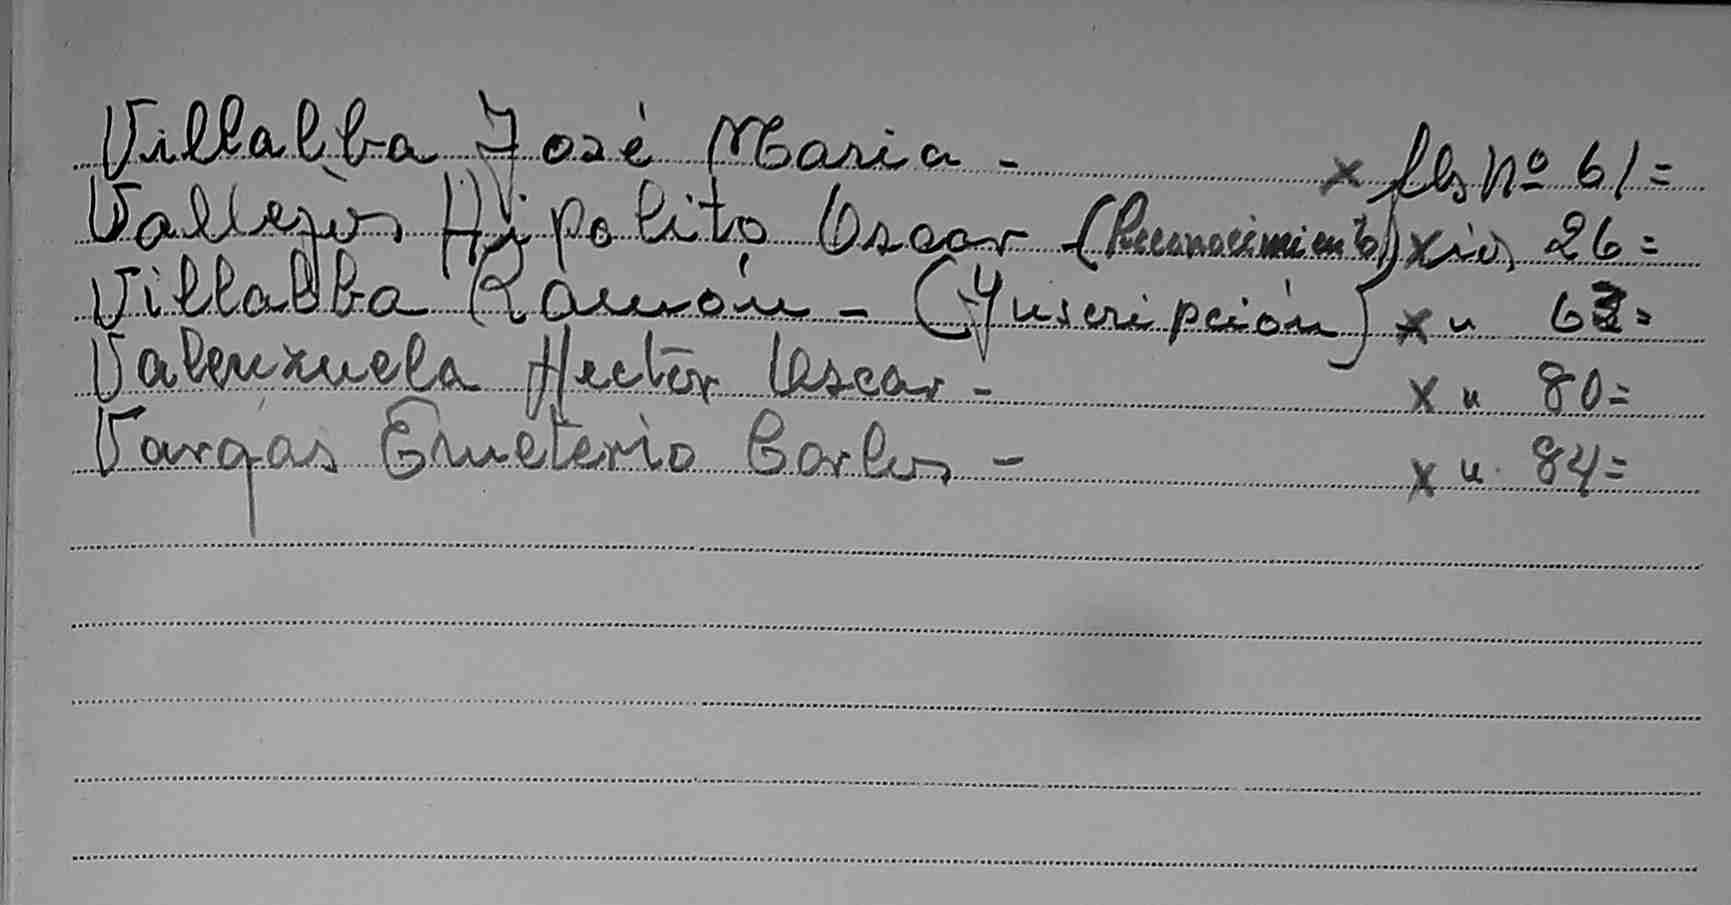 Villalba José Maria - x fls nº 61=
Vallejos Hipolito Oscar - (Reconocimiento) x 26=
Villalba Ramón - (Ynscripción) x " 62=
Valenzuela Hector Oscar - x " 80=
Vargas Emeterio Carlos - x " 84=